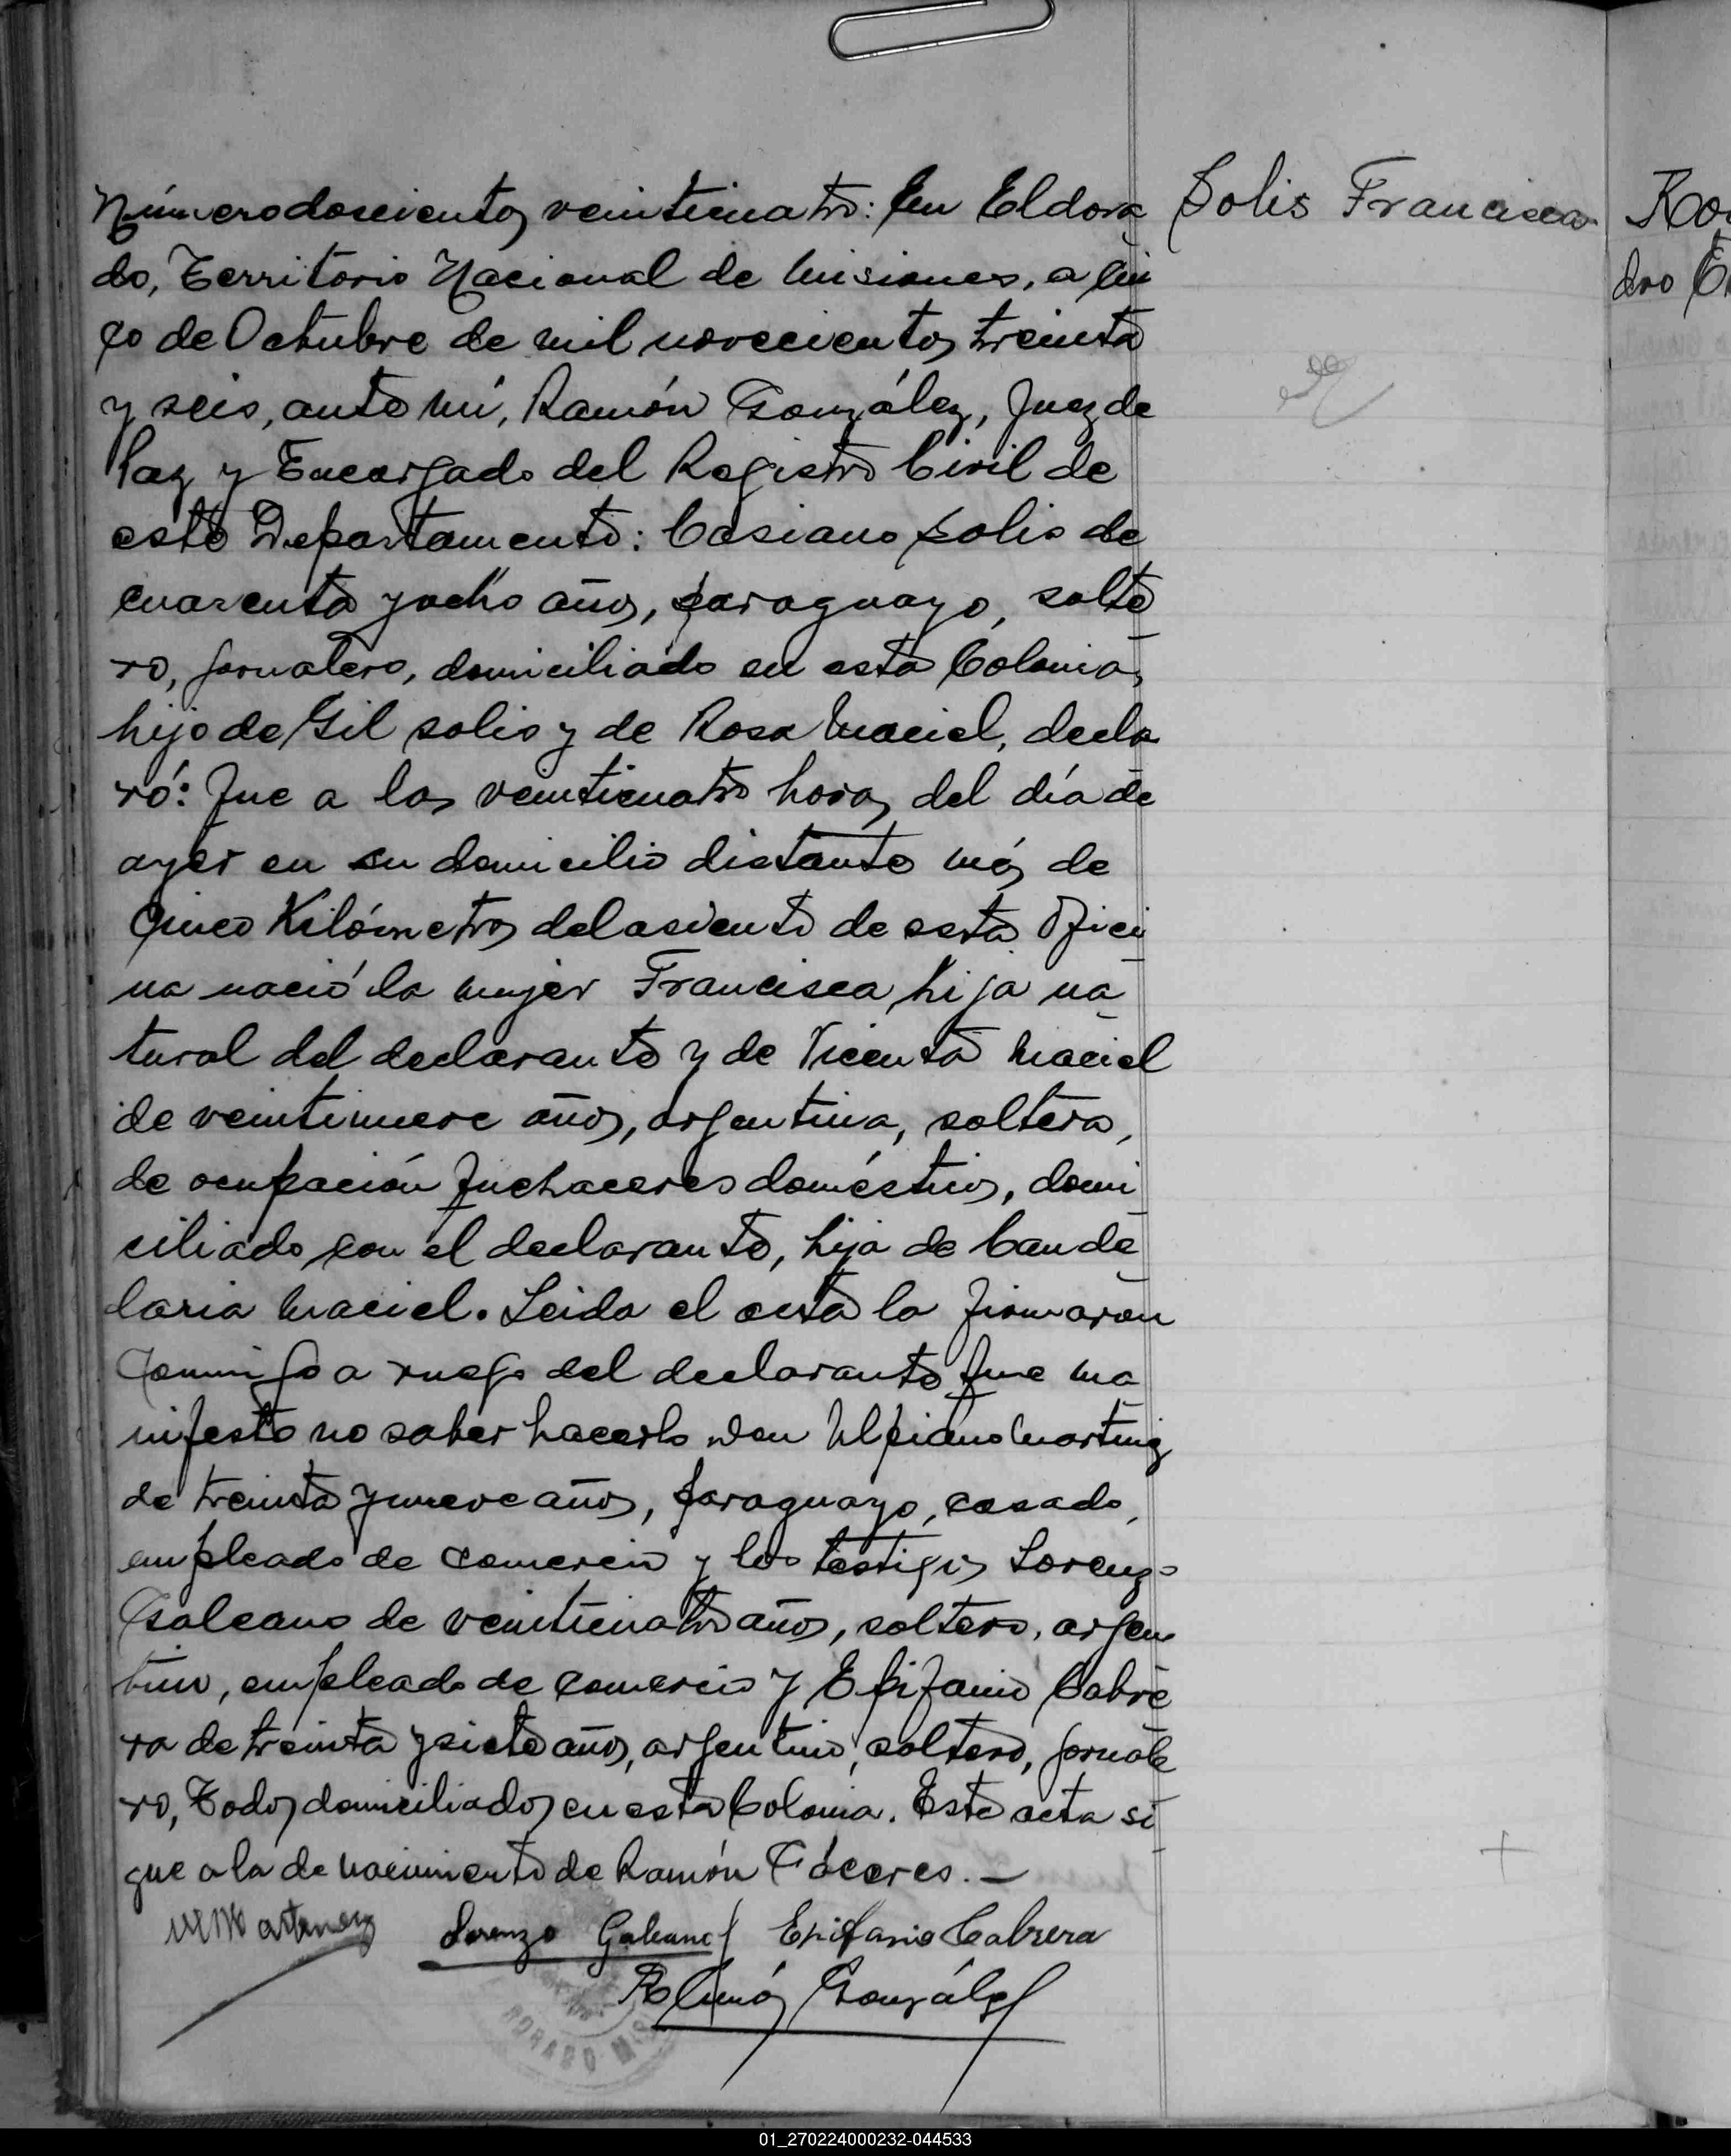 Número doscientos veinticuatro: En Eldora
do, Territorio Nacional de Misiones, a cin
co de Octubre de mil novecientos treinta
y seis, ante mí, Ramón González, Juez de
Paz y Encargado del Registro Civil de
este Departamento: Casiano Solis de
cuarenta y ocho años, paraguayo, solte
ro, jornalero, domiciliado en esta Colonia,
hijo de Gil Solis y de Rosa Maciel, decla
ró: Que a las veinticuatro horas del día de
ayer en su domicilio distante más de
cinco Kilómetros del asiento de esta Ofici
na nació la mujer Francisca hija na
tural del declarante y de Vicenta Maciel
de veintinueve años, argentina, soltera,
de ocupación quehaceres domésticos, domi
ciliado con el declarante, hija de Cande
laria Maciel. Leida el acta la firmaron
conmigo a ruego del declarante que ma
nifesto no saber hacerlo Don Ulpiano Martinez
de treinta y nueve años, paraguayo, casado,
empleado de comercio y los testigos Lorenzo
Galeano de veinticuatro años, soltero, argen
tino, empleado de comercio y Epifanio Cabre
ra de treinta y siete años, argentino, soltero, jornale
ro, Todos domiciliados en esta Colonia. Este acta si
gue a la de nacimiento de Ramón Cáceres. —
Martinez Lorenzo Galeano Epifanio Cabrera
Ramón González
Solis Francisca
dro
DORADO MIS
01_270224000232-044533